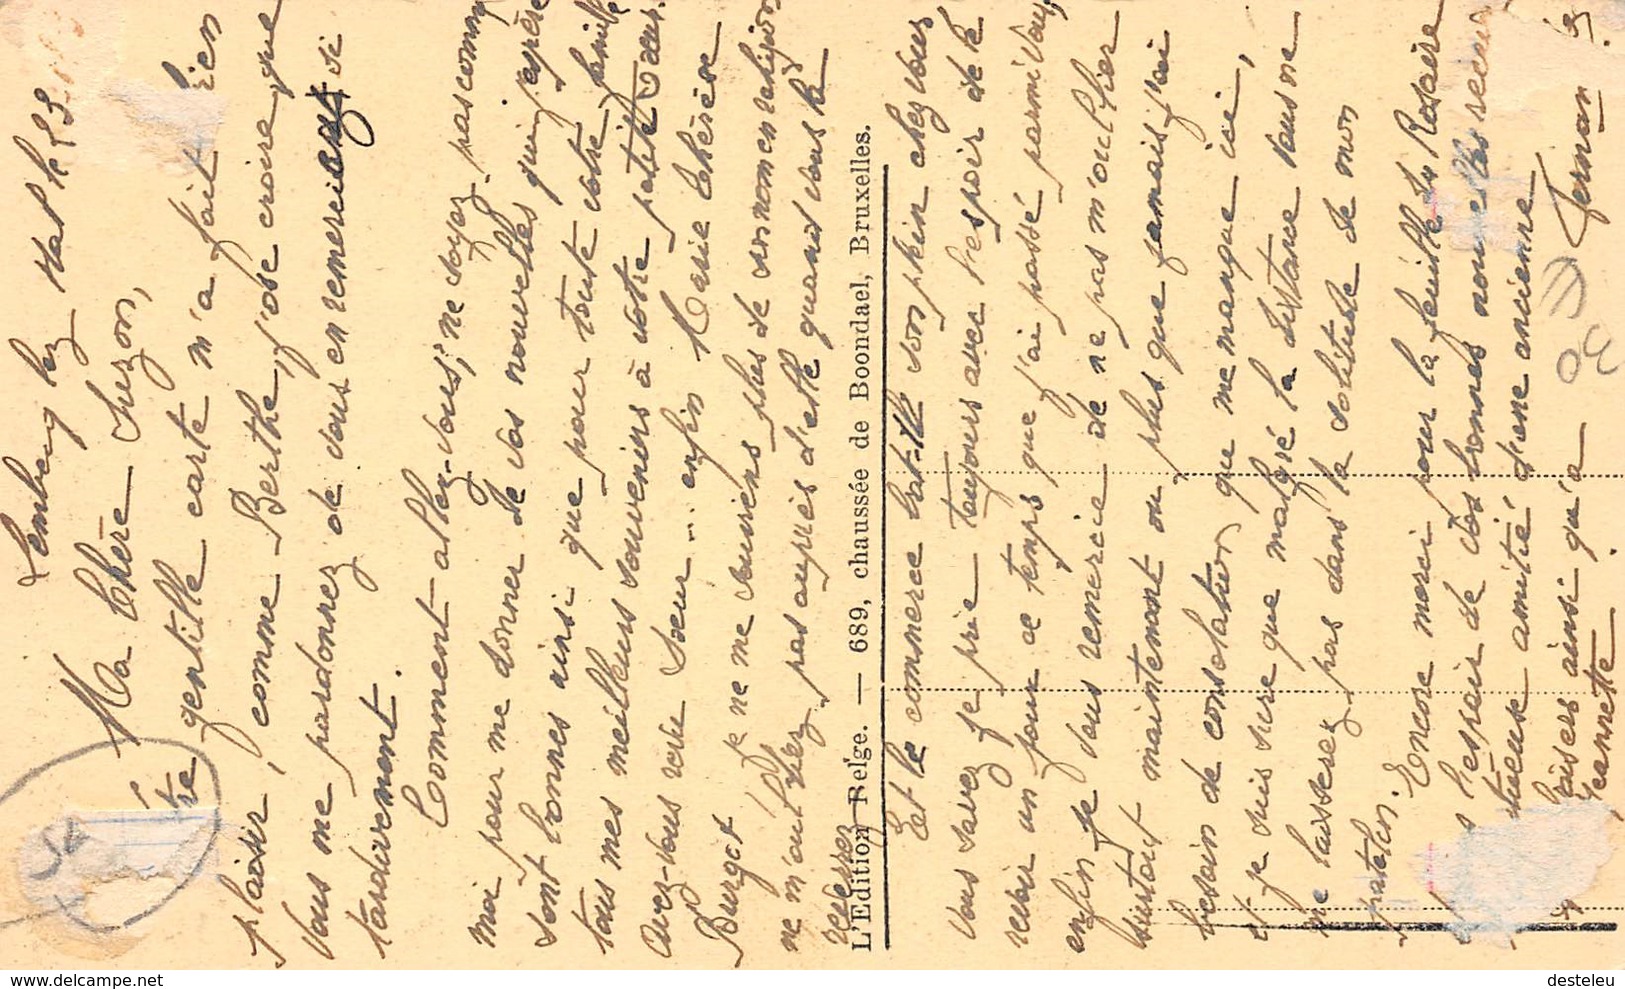 Lembecq lez Hal le 23
Ma Chère Suzon,
tre gentille carte m'a fait rien
plaisir, comme Berthe j'ose croire que
Vous me pardonnez de vous en remercier si
tardivement.
Comment allez-vous; ne soyez pas comme
moi pour me donner de vos nouvelles qui j'espère
sont bonnes ainsi que pour toute votre famille
tous mes meilleurs souvenirs à votre petite soeur.
Avez-vous revu Soeur ... enfin Marie Thérèse
Burget je ne me souviens plus de son nom en religion
ne m'oubliez pas auprès d'elle quand vous la
reverrez
L'Edition Belge. — 689, chaussée de Boondael, Bruxelles.
Et le commerce bat-il son plein chez vous
Vous savez je prie toujours avec l'espoir de le
revoir un jour ce temps que j'ai passé parmi vous,
enfin je vous remercie de ne pas m'oublier
surtout maintenant ou plus que jamais j'ai
besoin de consolation que me manque ici,
et je suis sure que malgré la distance vous ne
me laisserez pas dans la solitude de mon
patelin.
Encore merci pour la feuille du Rosaire
l'espoir de vos bonnes nouvelles recevez
tueuse amitié d'une ancienne
Baises ainsi qu'a Fernand
Jeannette
desteleu